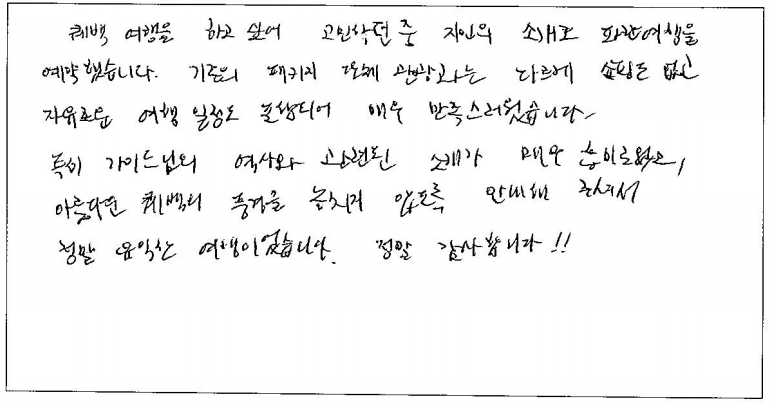 퀘백 여행을 하고 싶어 고민하던 중 지인의 소개로 파란여행을
예약했습니다. 기존의 패키지 단체 관광과는 다르게 쇼핑도 없고
자유로운 여행 일정도 포함되어 매우 만족스러웠습니다.
특히 가이드님의 역사와 관련된 소개가 매우 흥미로웠고,
아름다운 퀘백의 풍경을 놓치지 않도록 안내해 주셔서
정말 유익한 여행이었습니다. 정말 감사합니다!!